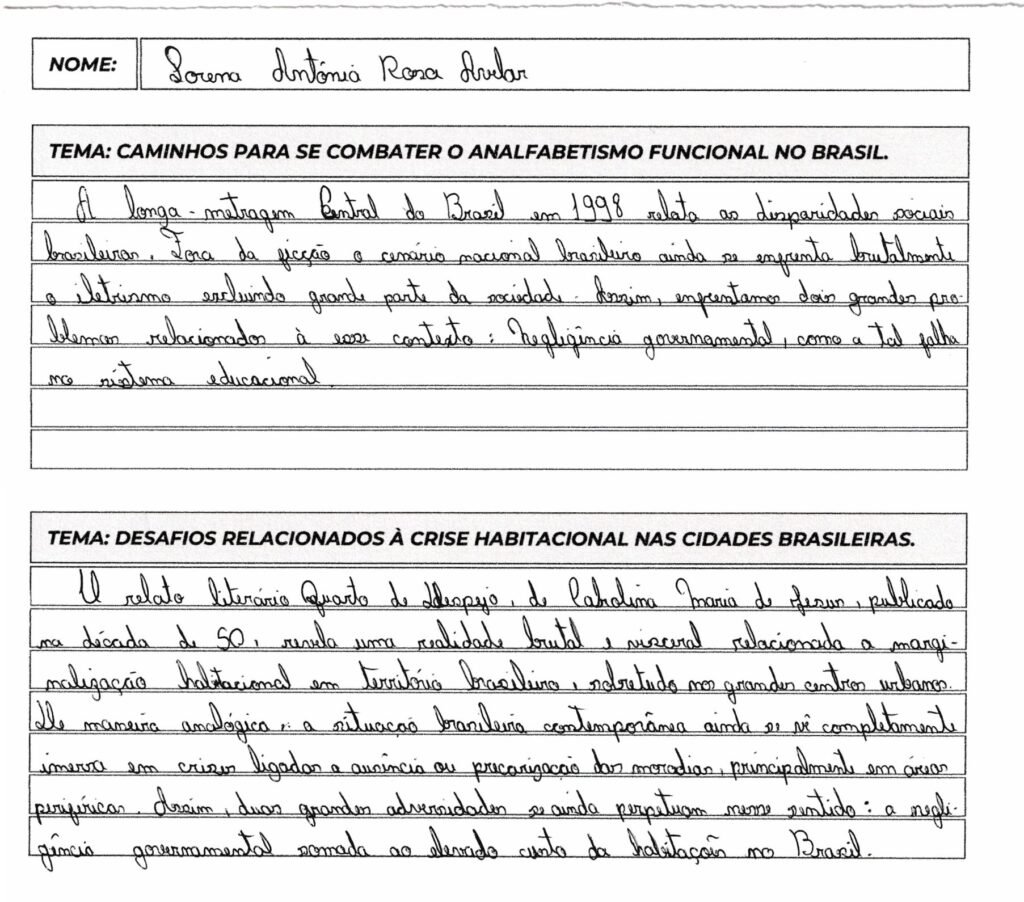 NOME: Lorena Antônia Rosa Avelar
TEMA: CAMINHOS PARA SE COMBATER O ANALFABETISMO FUNCIONAL NO BRASIL.
A longa-metragem Central do Brasil em 1998 relata as disparidades sociais
brasileiras. Fora da ficção o cenário nacional brasileiro ainda se enfrenta brutalmente
o iletrismo excluindo grande parte da sociedade. Assim, enfrentamos dois grandes pro-
blemas relacionados à esse contexto: Negligência governamental, como a tal falha
no sistema educacional.
TEMA: DESAFIOS RELACIONADOS À CRISE HABITACIONAL NAS CIDADES BRASILEIRAS.
O relato literário Quarto de Despejo, de Carolina Maria de Jesus, publicado
na década de 50, revela uma realidade brutal e visceral relacionada a margi-
nalização habitacional em território brasileiro, sobretudo nos grandes centros urbanos.
De maneira analógica, a situação brasileira contemporânea ainda se vê completamente
imersa em crises ligadas a ausência ou precarização das moradias, principalmente em áreas
periféricas. Assim, duas grandes adversidades se ainda perpetuam nesse sentido: a negli-
gência governamental somada ao elevado custo da habitação no Brasil.